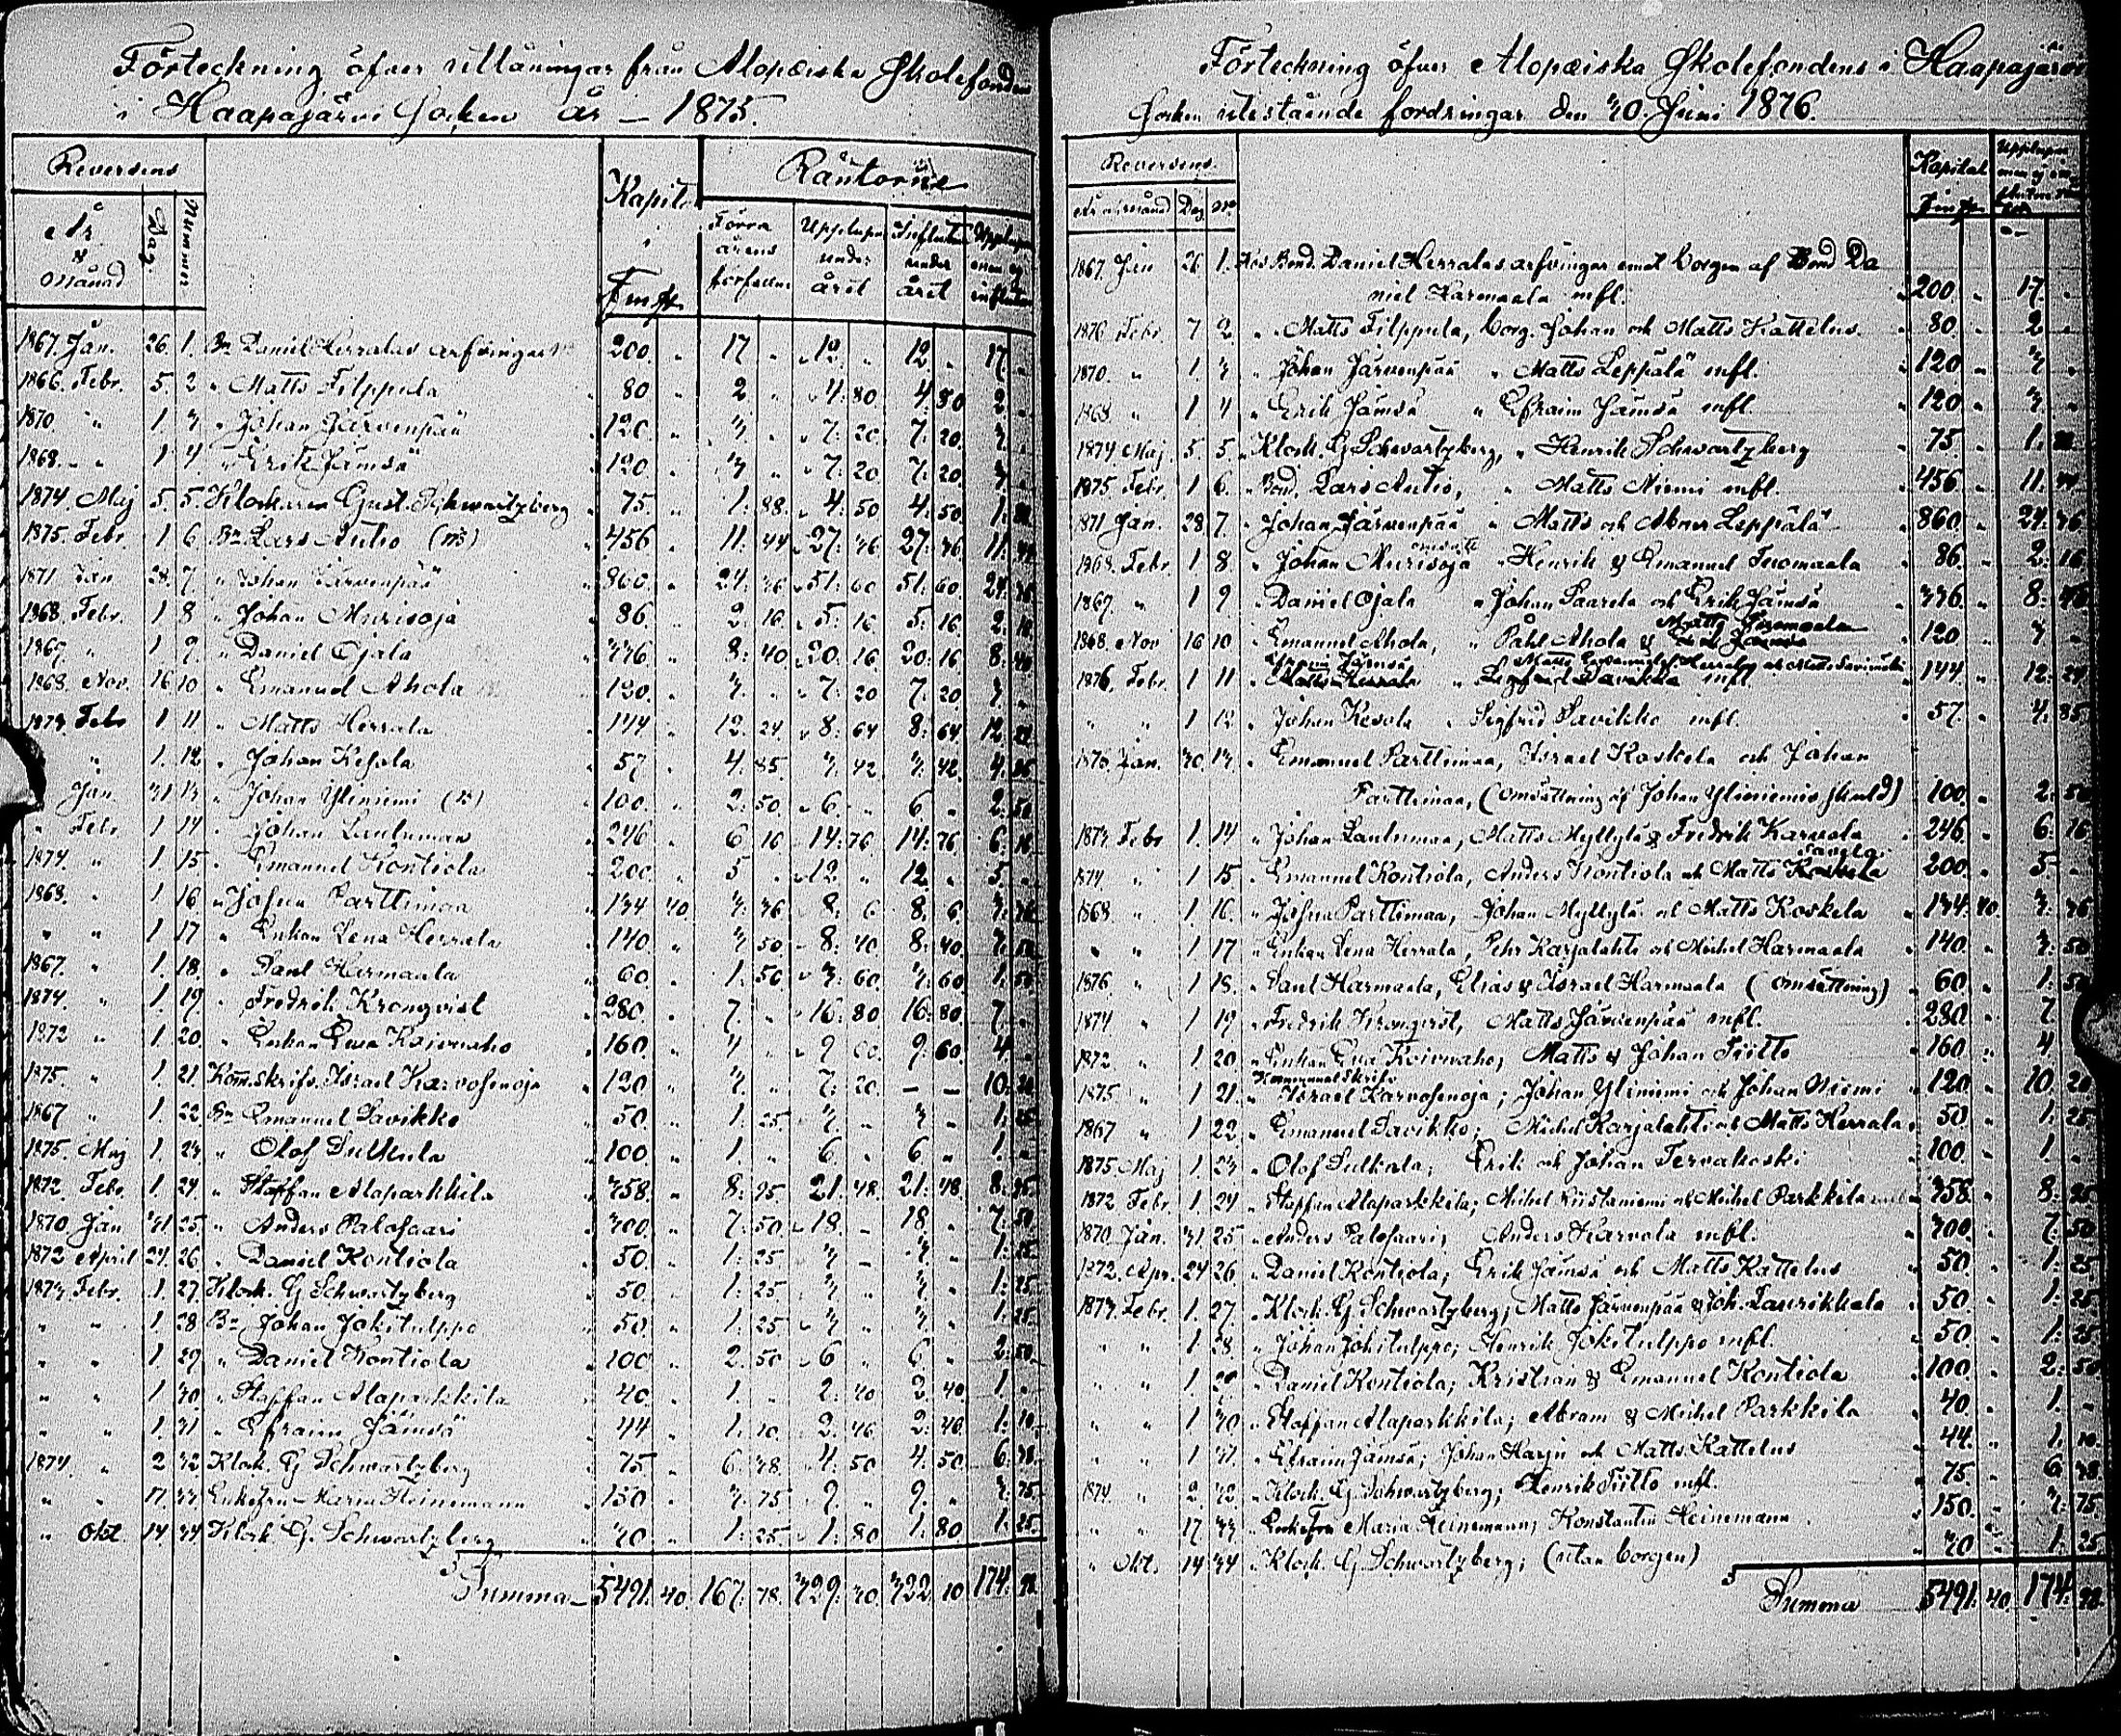 Förteckning öfver utlåningar från Alopæiska Skolefonden
i Haapajärvi Socken år – 1875.
Reversens Kapital Räntorne
År & Månad Dag Nummer Fmk Förra årens Upplupna under året Influtna under året Upplupen men ej influten
1867. Jan. 26. 1. Bn Daniel Herralas arfvingar 200. " 17 " 12 " 12 " 17. "
1866. Febr. 5. 2 " Matts Filppula 80 " 2 " 4: 80. 4: 80 2 "
1870. " 1 3 " Johan Järvenpää 120. " 3. " 7: 20 7: 20. 3 "
1868. " 1 4 " Erik Jämsä 120 " 3 " 7: 20 7: 20 3 "
1874. Maj 5. 5. Klockaren Gust. Schwartzberg 75. " 1: 88. 4: 50 4: 50. 1: 88
1875. Febr. 1 6 Bn Lars Autio 456 " 11: 44 27: 36 27: 36 11: 44
1871 Jan 28. 7 " Johan Järvenpää 860. " 24: 36 51: 60 51: 60 24: 36
1868. Febr. 1 8 " Johan Murisoja 86. " 2: 16 5: 16. 5: 16. 2: 16
1867. " 1 9. " Daniel Ojala 336. " 8: 40 20: 16 20: 16 8: 40
1868. Nov. 16 10 " Emanuel Ahola 120. " 3. " 7: 20 7: 20 3. "
1873. Febr 1 11 " Matts Herrala 144 " 12. 24. 8: 64 8: 64 12. 24
" " 1. 12. " Johan Kesola 57 " 4. 85. 3: 42 3: 42. 4. 85
" Jan 31 13 " Johan Yliniemi 100. " 2: 50 6 " 6 " 2: 50
" Febr. 1 14 " Johan Lauluman 246 " 6 16 14: 76 14: 76 6: 16
1874 " 1. 15. " Emanuel Kontiola 200. " 5 " 12 " 12 " 5. "
1868. " 1 16. " Josua Parttimaa 134 40 3: 36 8: 6 8: 6. 3: 36
" " 1 17 " Enkan Lena Herrala 140. " 3 50 8: 40 8: 40. 3: 50
1867. " 1. 18. " Paul Harmaala 60. " 1: 50 3: 60 3: 60 1: 50
1874. " 1. 19. " Fredrik Kronqvist 280. " 7. " 16: 80 16: 80. 7. "
1872 " 1. 20. " Enkan Eva Koivuaho 160. " 4 " 9 60. 9: 60 4 "
1875. " 1. 21. Kom.skrifv. Israel Karvosenoja 120 " 3. " 7: 20. — — 10: 20
1867 " 1. 22. Bn Emanuel Savikko 50. " 1: 25 3 " 3 " 1: 25
1875. Maj 1. 23. " Olof Sulkula 100. " 1. " 6. " 6 " 1. "
1872. Febr. 1. 24. " Staffan Alaparkkila 358. " 8: 95 21: 48. 21: 48. 8: 95
1870 Jan 31 25. " Anders Palosaari 300. " 7: 50 18. " 18 " 7: 50
1872 April 24. 26. " Daniel Kontiola 50. " 1: 25 3 – 3 " 1: 25
1873 Febr. 1. 27. Klock. G Schwartzberg 50. " 1: 25 3 " 3 " 1: 25
" " 1. 28 Bn Johan Jokitulppo 50. " 1: 25 3 " 3 " 1: 25
" " 1. 29 " Daniel Kontiola 100 " 2. 50 6 " 6 " 2: 50
" " 1 30. " Staffan Alaparkkila 40. " 1. " 2: 40 2. 40. 1 "
" " 1. 31 " Efraim Jämsä 44 " 1: 10. 2: 46 2: 46. 1: 10
1874. " 2 32. Klock. G Schwartzberg 75 " 6: 38. 4: 50 4: 50. 6: 38.
" " 17. 33. Enkefru Maria Heinemann 150 " 3. 75 9. " 9. " 3. 75
" Okt. 14. 34 Klock G. Schwartzberg 30 " 1: 25 1: 80 1: 80. 1: 25
Summa 5491. 40. 167: 78. 329: 30. 322. 10 174. 98
Förteckning öfver Alopæiska Skolefondens i Haapajärvi
Socken utestående fordringar den 30. Juni 1876.
Reversens. Kapital Upplupen men ej
År o. månad Dag No Fmk
1867. Jan 26 1. Hos Bond. Daniel Herralas arfvingar emot borgen af Bond Da
niel Harmaala mfl. 200 " 17. "
1876 Febr 7 2. " Matts Filppula, borg. Johan och Matts Kattelus. 80. " 2 "
1870. " 1. 3 " Johan Järvenpää " Matts Leppälä mfl. 120 " 3 "
1868 " 1 4 " Erik Jämsä " Efraim Jämsä mfl. 120 " 3 "
1874 Maj. 5 5. Klock. G Schwartzberg, " Henrik Schwartzberg 75. " 1: 88
1875. Febr. 1 6. " Bond. Lars Autio, " Matts Niemi mfl. 456 " 11: 44
1871 Jan. 28 7. " Johan Järvenpää " Matts och Abner Leppälä 860. " 24: 36
1868. Febr. 1 8. " Johan Murisoja " Henrik & Emanuel Tuomaala 86. " 2: 16
1867. " 1 9 " Daniel Ojala " Johan Saarela och Erik Jämsä 336. " 8: 40
1868 Nov 16 10 " Emanuel Ahola, " Påhl Ahola & Matts Tuomaala 120 " 3 "
1876. Febr. 1 11 " Efraim Jämsä " mfl. 144. " 12: 24
" " 1 12 " Johan Kesola " Sigfrid Savikko mfl. 57. " 4: 85
1876. Jan. 30. 13. " Emanuel Parttimaa, Israel Koskela och Johan
Parttimaa, (omsättning af Johan Yliniemis skuld) 100. " 2: 50
1873. Febr 1. 14 " Johan Lauluman, Matts Myllylä & Fredrik Karvola 246. " 6: 16
1874. " 1 15. " Emanuel Kontiola, Anders Kontiola och Matts Koskela 200. " 5 "
1868 " 1 16. " Josua Parttimaa, Johan Myllylä och Matts Koskela 134: 40. 3: 36
" " 1 17 " Enkan Lena Herrala, Pehr Karjalahti och Michel Harmaala 140. " 3: 50
1876 " 1 18. " Paul Harmaala, Elias & Israel Harmaala (omsättning) 60 " 1: 50
1874 " 1 19 " Fredrik Kronqvist, Matts Järvenpää mfl. 280. " 7 "
1872 " 1 20 " Enkan Eva Koivuaho, Matts & Johan Tiitto 160 " 4 "
Kommunalskrifv.
1875 " 1 21. " Israel Karvosenoja; Johan Yliniemi och Johan Niemi 120 " 10. 20
1867 " 1 22 " Emanuel Savikko; Michel Karjalahti och Matts Herrala 50. " 1: 25
1875 Maj 1. 23 " Olof Sulkula; Erik och Johan Tervakoski 100 " 1 "
1872 Febr 1. 24 " Staffan Alaparkkila; Michel Kiistaniemi och Michel Parkkila 358. " 8: 95
1870. Jan. 31. 25 " Anders Palosaari; Anders Karvola mfl. 300. " 7: 50
1872. Apr. 24 26 " Daniel Kontiola; Erik Jämsä och Matts Kattelus 50. " 1: 25
1873 Febr. 1. 27. " Klock. G Schwartzberg; Matts Järvenpää & Joh. Laurikkala 50. " 1: 25
" " 1. 28. " Johan Jokitulppo; Henrik Jokitulppo mfl. 50. " 1: 25
" " 1. 29 " Daniel Kontiola; Kristian & Emanuel Kontiola 100. " 2: 50
" " 1 30 " Staffan Alaparkkila; Abram & Michel Parkkila 40. " 1. "
" " 1 31. " Efraim Jämsä; Johan Harju och Matts Kattelus 44. " 1. 10
1874 " 2. 32 " Klock. G Schwartzberg; Henrik Tiitto mfl. 75. " 6 38
" " 17 33 " Enkefru Maria Heinemann; Konstantin Heinemann 150. " 3: 75
" Okt. 14 34 " Klock. G Schwartzberg; (utan borgen) 30 " 1: 25
Summa 5491: 40. 174: 98.